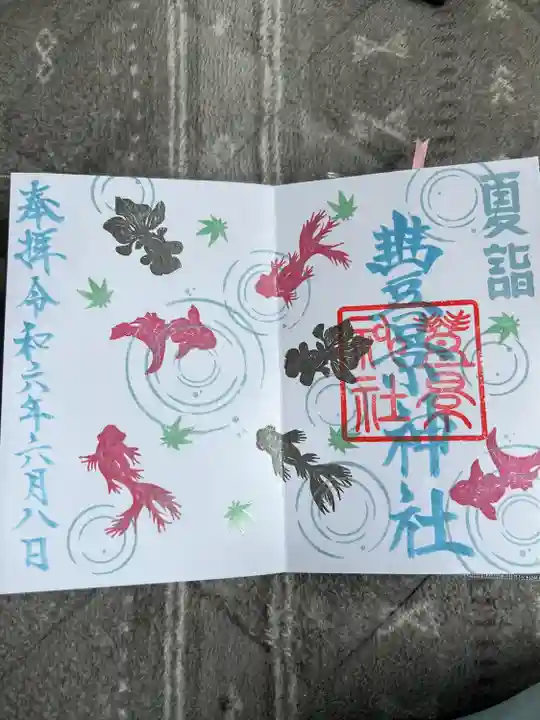 夏詣
豊景神社
豊景神社
奉拝令和六年六月八日